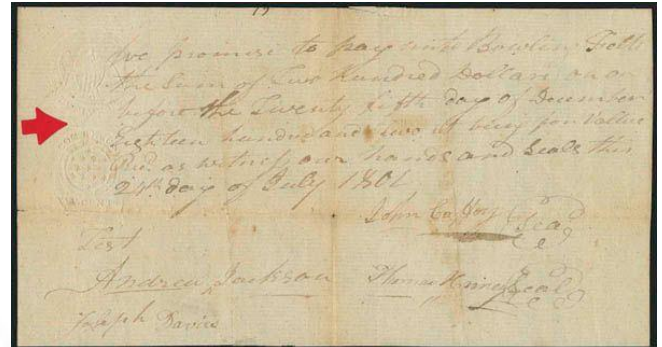 We promise to pay unto Bowlin Felts
the Sum of Two hundred Dollars on or
before the Twenty fifth day of December
Eighteen hundred and two it being for Vallue
Recd. as witness our hands and Seals this
24th day of July 1801
John Coffory Seal
Test
Andrew Jackson Thomas Seal
Joseph Davies